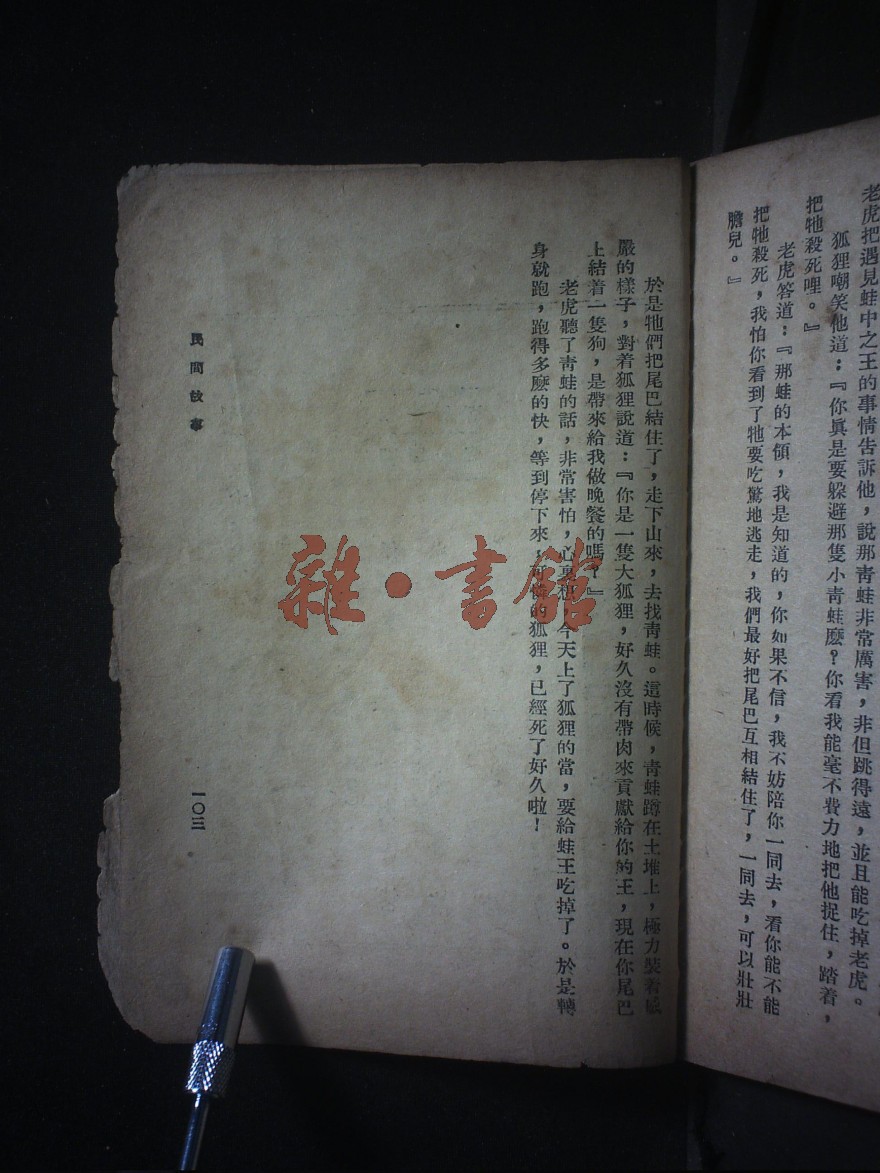 老虎把遇見蛙中之王的事情告訴他，說那靑蛙非常厲害，非但跳得遠，並且能吃掉老虎。
狐狸嘲笑他道：『你眞是要躲避那隻小靑蛙麽？你看我能毫不費力地把他捉住，踏着，
把牠殺死哩。』
老虎答道：『那蛙的本領，我是知道的，你如果不信，我不妨陪你一同去，看你能不能
把牠殺死，我怕你看到了牠要吃驚地逃走，我們最好把尾巴互相結住了，一同去，可以壯壯
膽兒。』
於是牠們把尾巴結住了，走下山來，去找靑蛙。這時候，靑蛙蹲在土堆上，極力裝着威
嚴的樣子，對着狐狸說道：『你是一隻大狐狸，好久沒有帶肉來貢獻給你的王，現在你尾巴
上結着一隻狗，是帶來給我做晚餐的嗎？』
老虎聽了靑蛙的話，非常害怕，心裏想，今天上了狐狸的當，要給蛙王吃掉了。於是轉
身就跑，跑得多麽的快，等到停下來，可憐的狐狸，已經死了好久啦！
民間故事
一〇三
雜·書館